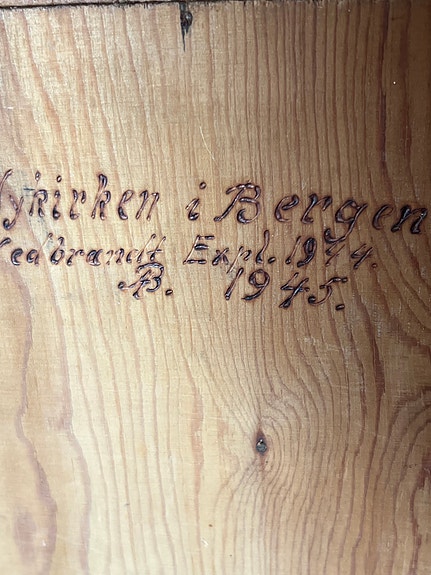 Nykirken i Bergen
Nedbrandt Expl. 1944.
AB. 1945.